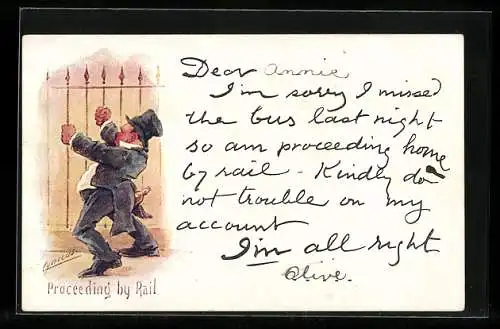 Dear Annie,
I'm sorry I missed
the bus last night
so am proceeding home
by rail - Kindly do
not trouble on my
account
I'm all right
Olive.
Proceeding by Rail